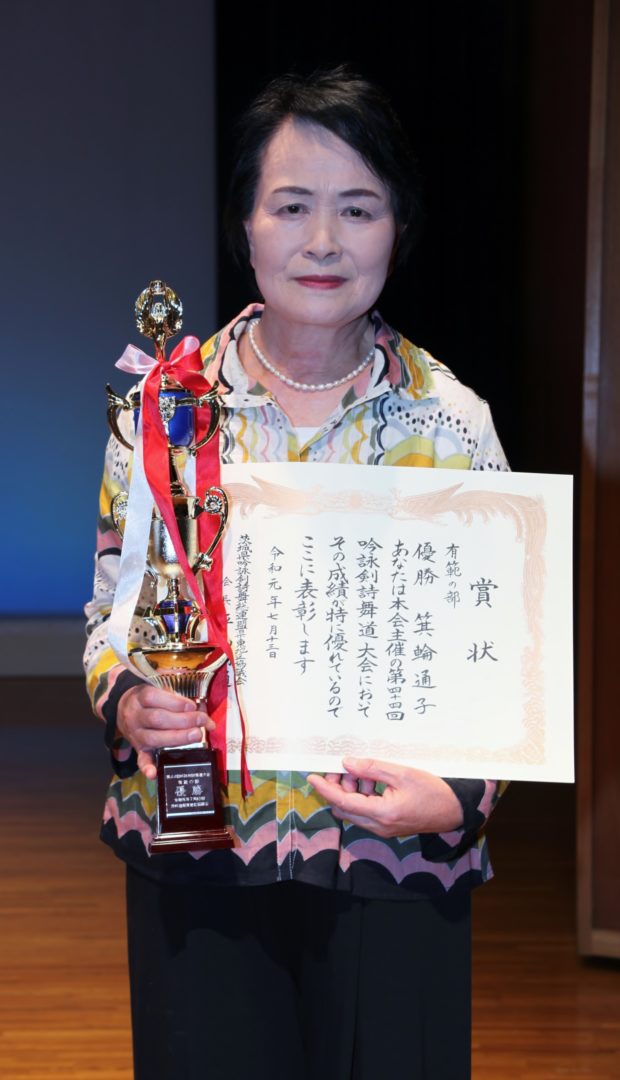 賞状
有範の部
優勝 箕輪通子
あなたは本会主催の第四十四回
吟詠剣詩舞道大会において
その成績が特に優れているので
ここに表彰します
令和元年七月十三日
茨城県吟詠剣詩舞総連盟
有範の部
優勝